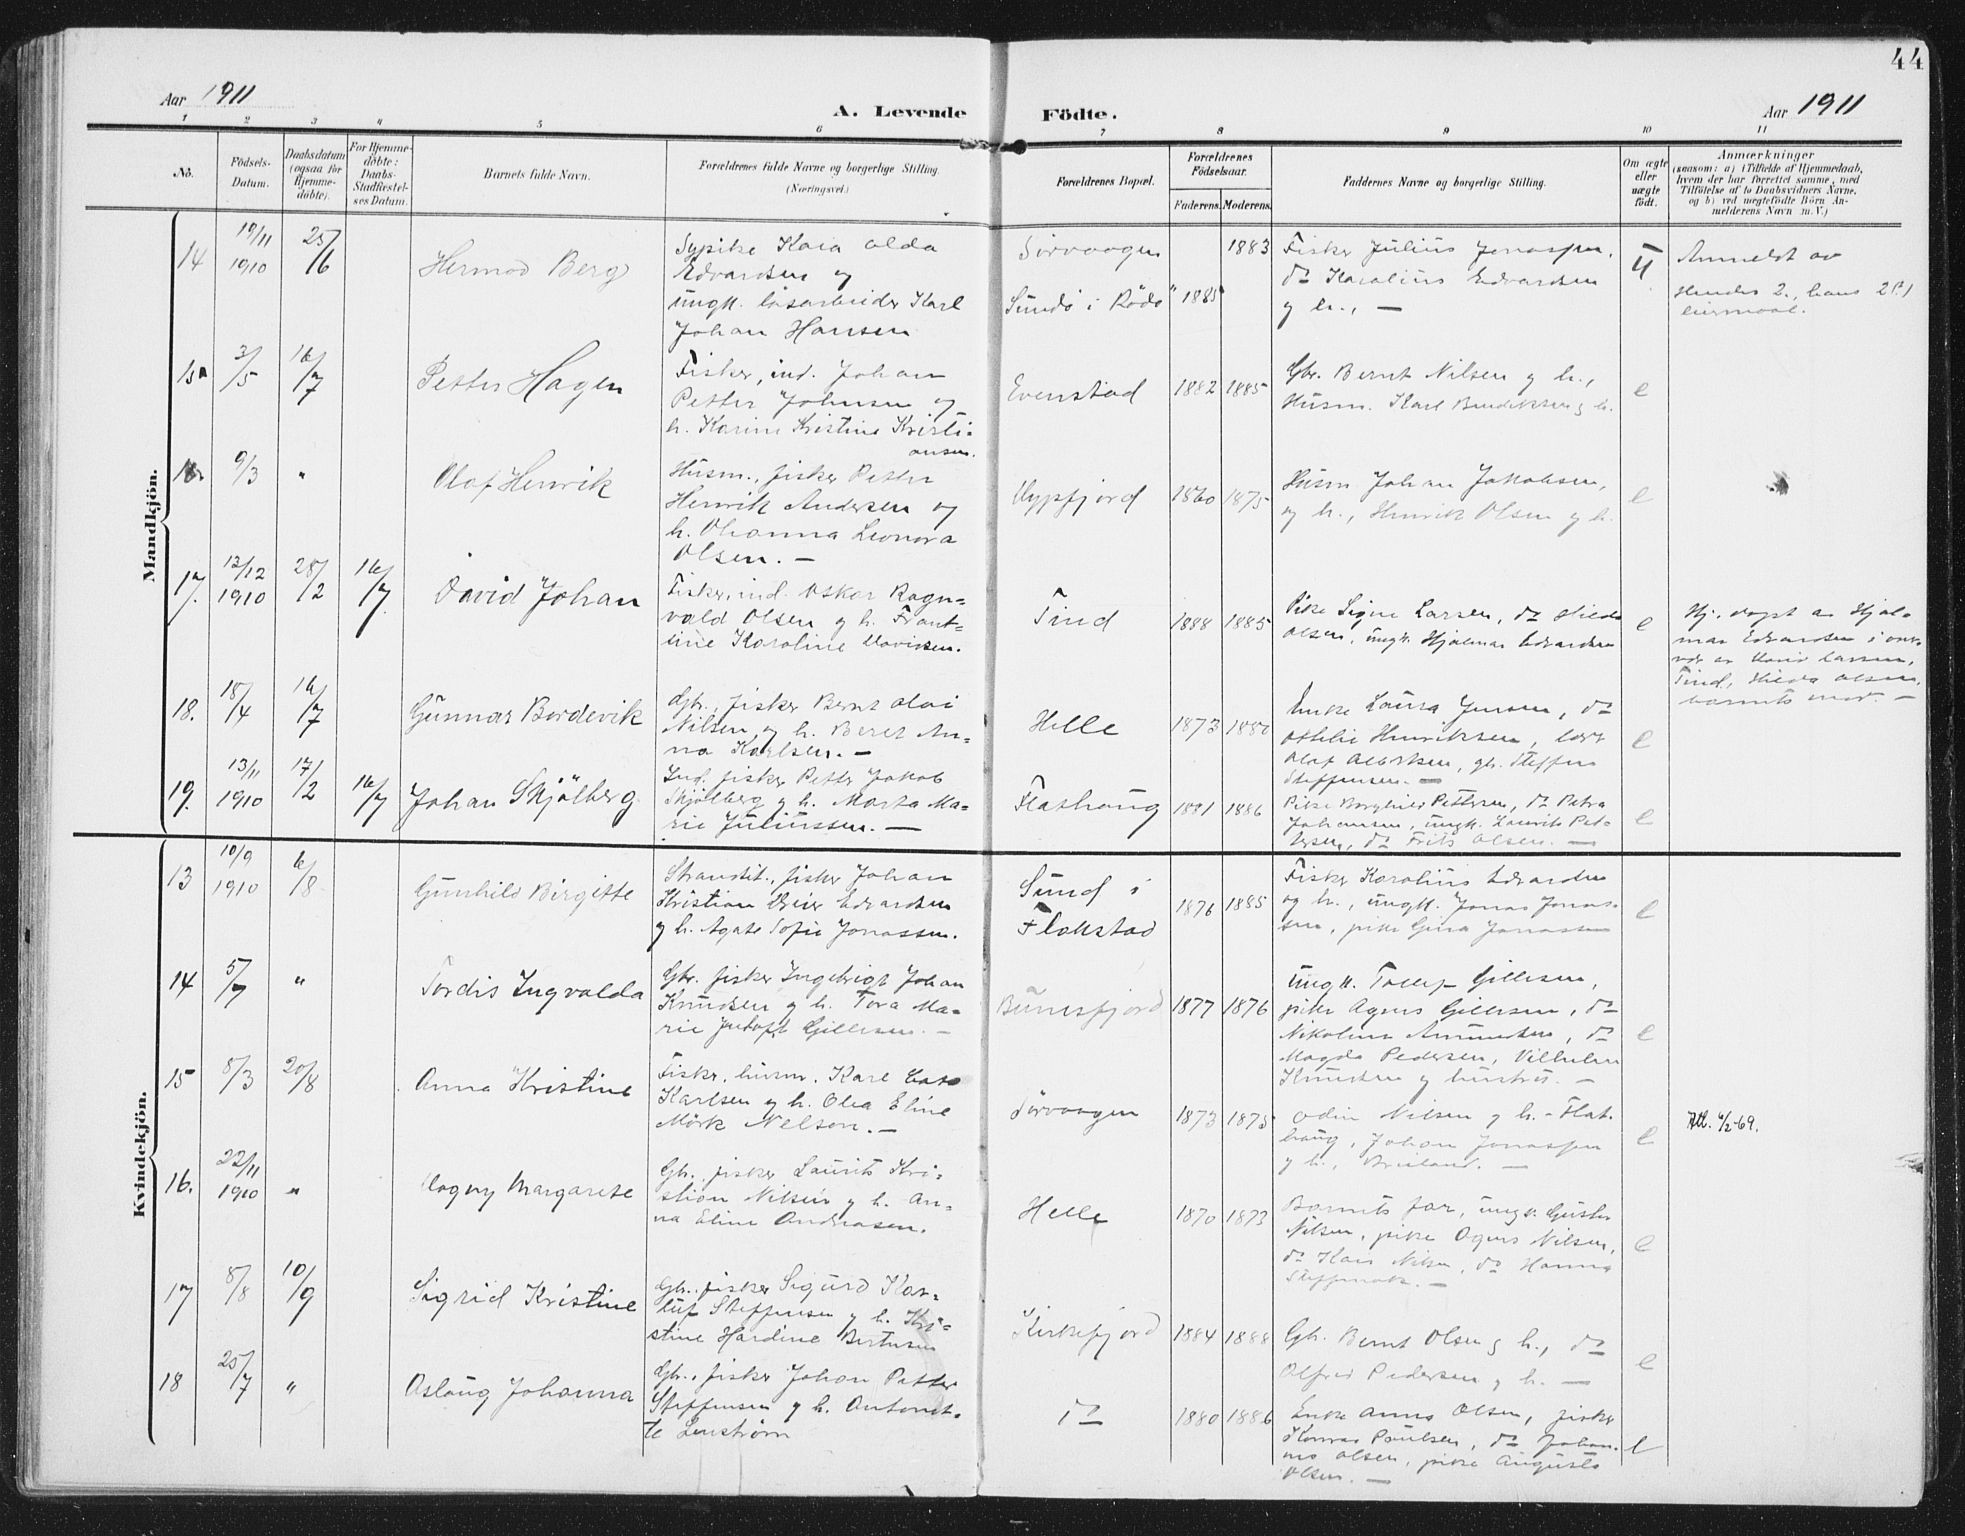 44
Aar 1911
A. Levende
Födte.
Aar 1911
1 2 3 4 5 6 7 8 9 10 11
No.
Födsels-
Datum.
Daabsdatum
(ogsaa for
Hjemme-
döbte).
For Hjemme-
döbte:
Daabs-
Stadfæstel-
ses Datum.
Barnets fulde Navn.
Forældrenes fulde Navne og borgerlige Stilling.
(Næringsvei.)
Forældrenes Bopæl.
Forældrenes
Födselsaar.
Faderens. Moderens.
Faddernes Navne og borgerlige Stilling.
Om ægte
eller
uægte
födt.
Anmærkninger
(saasom: a) i Tilfælde af Hjemmedaab,
hvem der har forrettet samme, med
Tilföielse af to Daabsvidners Navne,
og b) ved uægtefödte Börn An-
melderens Navn m. V.)
Mandkjön.
14
19/11
1910
25/6
Hermod Berg
Sypike Kaia Alda
Edvardsen og
ungk. løsarbeider Karl
Johan Hansen
Sørvaagen
Sundö i Rödö
1885
1883
Fisker Julius Jonassen,
do Karolius Edvardsen
og h., —
U
Anmeldt av
Hendes 2., hans 2det
leiermaal.
15
3/5
16/7
Petter Hagen
Fisker, ind. Johan
Petter Johnsen og
h. Karine Kristine Kristi-
ansen.
Evenstad
1882 1885
Gbr. Bernt Nilsen og h.,
Husm. Karl Bendiksen og h.
e
16
9/3
"
Olaf Henrik
Husm., fisker Petter
Henrik Andersen og
h. Johanna Leonora
Olsen. —
1860 1875
Husm Johan Jakobsen,
og h., Henrik Olsen og h.
e
17.
12/12
1910
28/2
16/7
David Johan
Fisker, ind. Oskar Ragn-
vald Olsen og h. Frant-
sine Karoline Davidsen.
Tind
1888 1885
Pike Signe Larsen, do Hilda
Olsen, ungk. Hjalmar Edvardsen
e
Hj. døpt av Hjal-
mar Edvardsen i over-
vær av Larsen,
Tind, Hilda Olsen,
barnets mor. —
18.
18/4
16/7
Gunnar Bordevik
Gbr., fisker Bernt Olai
Nilsen og h. Beret An-
na Karlsen. —
Helle
1873 1880
Enke Laura Jensen, do
Othilie Henriksen,
Olaf Albertsen, gb. Steffen
Steffensen. —
e
19.
13/11
1910
17/2
16/7
Johan Skjölberg
Ind. fisker Petter Jakob
Skjölberg og h. Marta Ma-
rie Juliussen. —
Flathaug
1881 1886
Pike Borghild Pettersen, do Petra
Johansen, ungk. Laurits Pet-
tersen, do Frits Olsen. —
e
Kvindekjön.
13
10/9
1910
6/8
Gunhild Birgitte
Strandsit., fisker Johan
Kristian Meier Edvardsen
og h. Agate Sofie Jonassen.
Sund i
Flakstad
1876 1885
Fisker Karolius Edvardsen
og h., ungk. Jonas Jonas-
sen, pike Gina Jonassen
e
14
5/7
"
Tordis Ingvalda
Gbr. fisker Ingebrigt Johan
Knudsen og h. Tora Ma-
rie Gillesen. —
Bunesfjord
1877 1876
Ungk. Tollef Gillesen,
pike Agnes Gillesen, do
Nikoline Amundsen, do
Magda Pedersen, Vilhelm
Knudsen og hustru. —
e
15
8/3
20/8
Anna Kristine
Fisker, husm. Karl
Karlsen og h. Olea Eline
Mörk Nelson. —
Sørvaagen
1873 1875
Odin Nilsen og h. - Flat-
haug, Johan Jonassen
og h., —
e
Att. 6/2-69.
16.
22/11
1910
"
Dagny Margarete
Gbr. fisker Laurits Kri-
stian Nilsen og h. An-
na Eline Andreasen.
Helle
1870 1873
Barnets far, ungk. Gustav
Nilsen, pike Agnes Nilsen,
do Nilsen, do Hanna
Steffensen. —
e
17
8/8
10/9
Sigrid Kristine
Gbr., fisker Sigurd Kar-
luf Steffensen og h. Kri-
stine Hardine Bertinsen
Kirkefjord
1884 1888
Gbr. Bernt Olsen og h., do
Alfred Pedersen og h. —
e
18
25/7
"
Aslaug Johanna
Gbr., fisker Johan Petter
Steffensen og h. Antonet-
te Lenstrøm
do
1880 1886
Enke Anna Olsen, fisker
Konrad Paulsen, do Johan-
nes Olsen, pike Augusta
Olsen. —
e